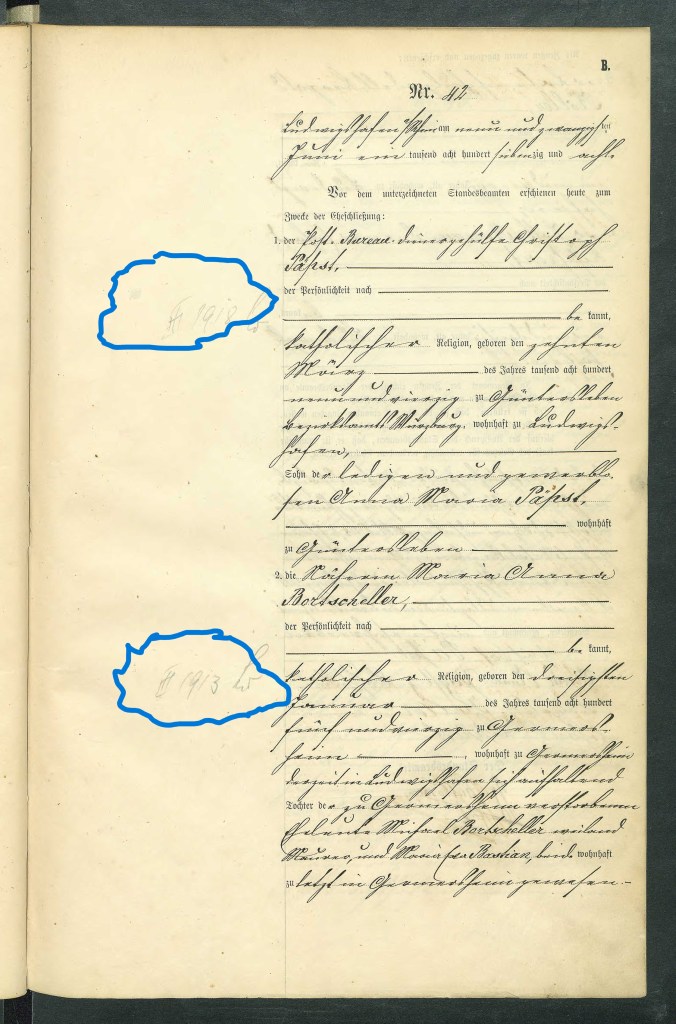 B.
Nr. 42
Ludwigshafen a/Rhein am neun und zwanzigsten
Juni ein tausend acht hundert siebenzig und acht.
Vor dem unterzeichneten Standesbeamten erschienen heute zum
Zwecke der Eheschließung:
1. der Post-Bureau-dienergehülfe Christoph
Päpst,
der Persönlichkeit nach
be kannt,
1918
katholischer Religion, geboren den zehnten
März des Jahres tausend acht hundert
neun und vierzig zu Güntersleben
Bezirksamts Würzburg, wohnhaft zu Ludwigs-
hafen,
Sohn der ledigen und gewerblo-
sen Anna Maria Päpst,
wohnhaft
zu Güntersleben
2. die Näherin Maria Anna
Bortscheller,
der Persönlichkeit nach
be kannt,
1913
katholischer Religion, geboren den dreißigsten
Januar des Jahres tausend acht hundert
fünf und vierzig zu Germers-
heim, wohnhaft zu Germersheim
derzeit in Ludwigshafen sich aufhaltend
Tochter der zu Germersheim verstorbenen
Eheleute Michael Bortscheller weiland
Maurer, und Maria Eva Bastian, beide wohnhaft
zu letzt in Germersheim gewesen.-